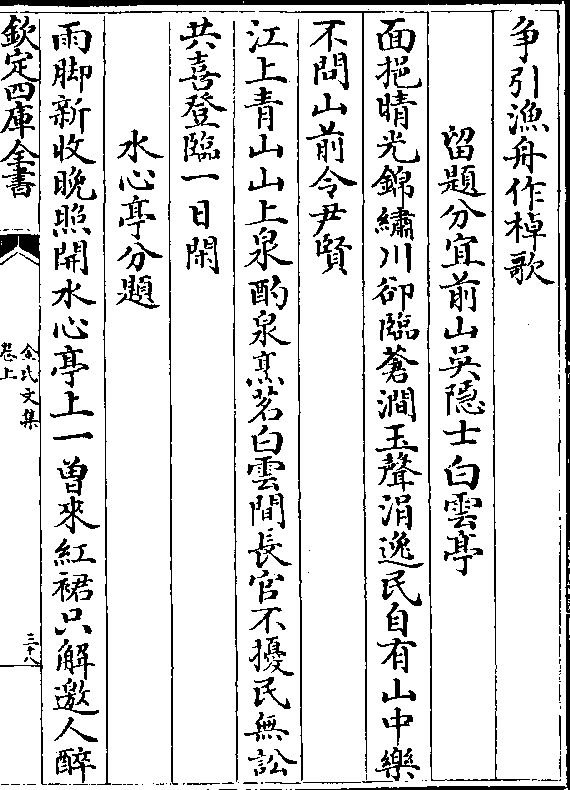 争引漁舟作棹歌
留題分宜前山吳隱士白雲亭
面挹晴光錦繡川卻臨蒼澗玉聲涓逸民自有山中樂
不問山前令尹賢
江上青山山上泉酌泉烹茗白雲間長官不擾民無訟
共喜登臨一日閑
水心亭分題
雨脚新收晚照開水心亭上一曽來紅裙只解邀人醉
欽定四庫全書
金氏文集
卷上
三十八